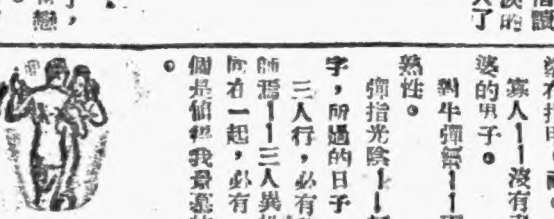 的
人了
了，
戀
寡人——沒有
婆的男子。
對牛彈琴——
熱性。
彈指光陰——
字，所過的日子
三人行，必有
師焉——三人異
同在一起，必有
個是值得我景慕
。